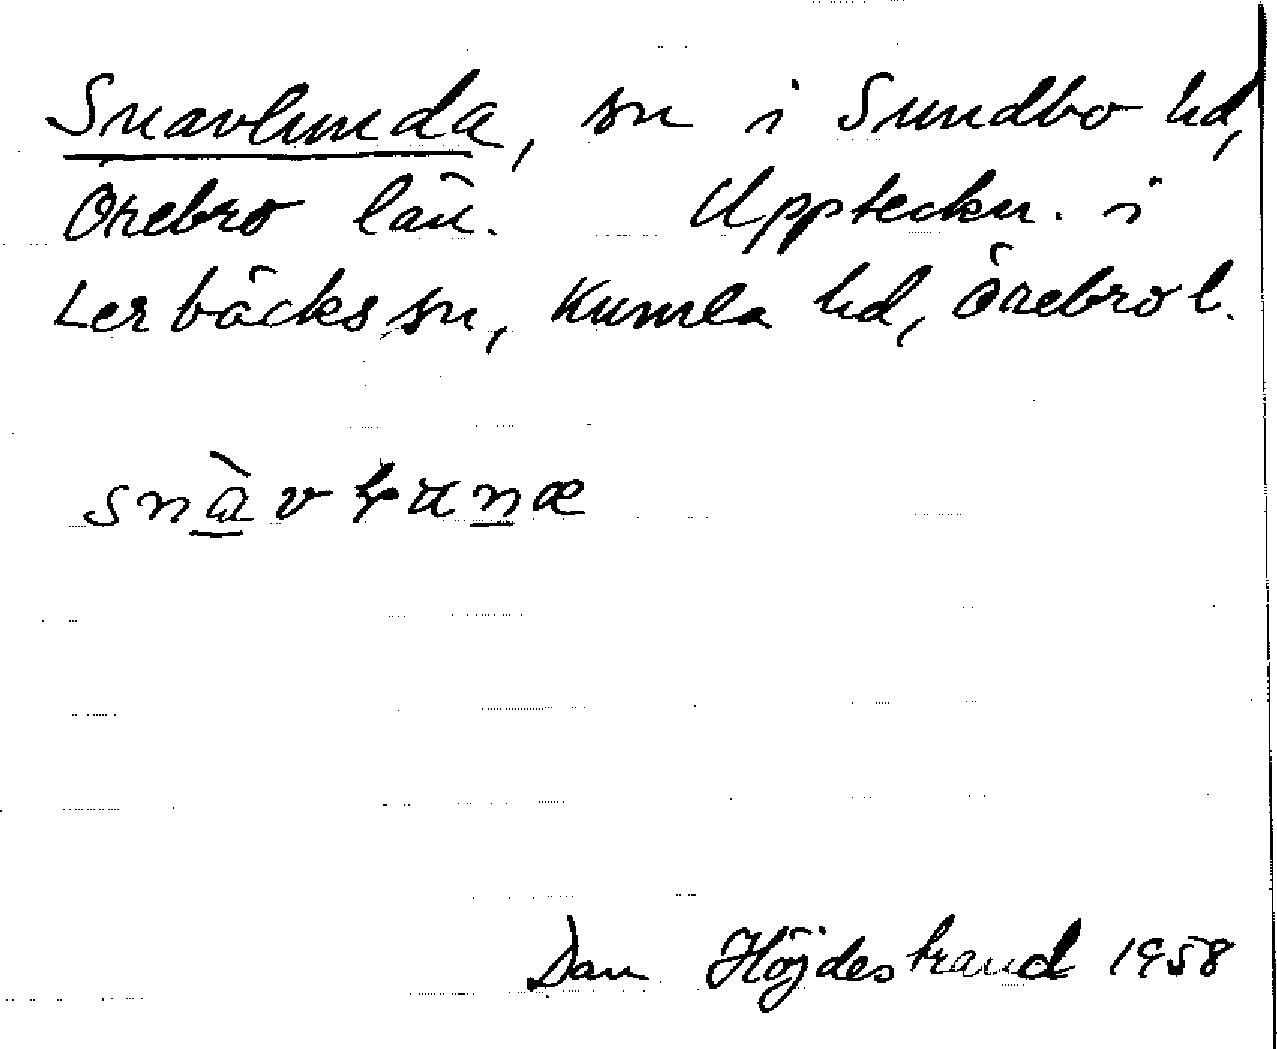 Snavlunda, sn i Sundbo hd,
Örebro län. Uppteckn. i
Lerbäcks sn, Kumla hd, Örebro l.
snàvłunæ
Dan Höjdestrand 1958